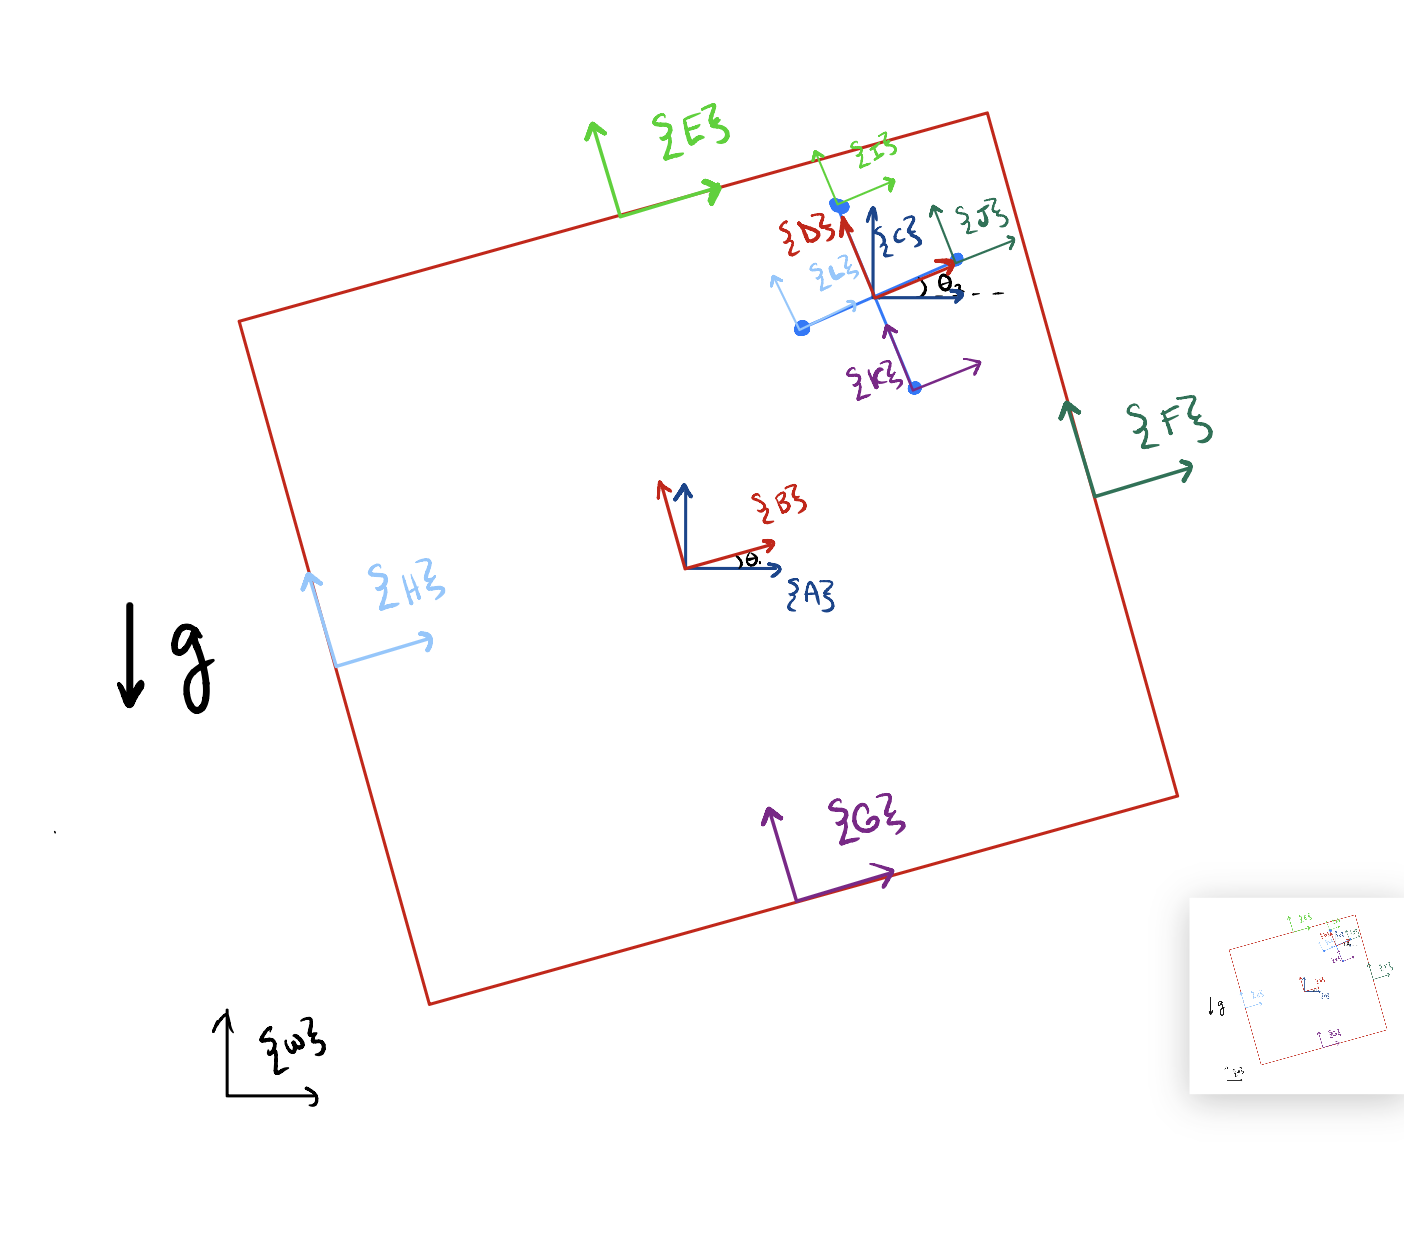 {E}
{I}
{J}
{D}
{C}
{L}
θ₂
{K}
{F}
{B}
θ₁
{A}
{H}
g
{G}
{W}